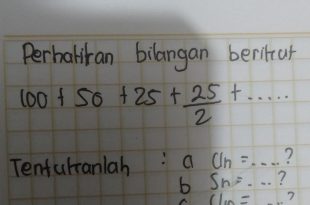 Perhatikan bilangan berikut
100 + 50 + 25 + 25/2 + .....
Tentukanlah : a Un = ....?
b Sn = ...?